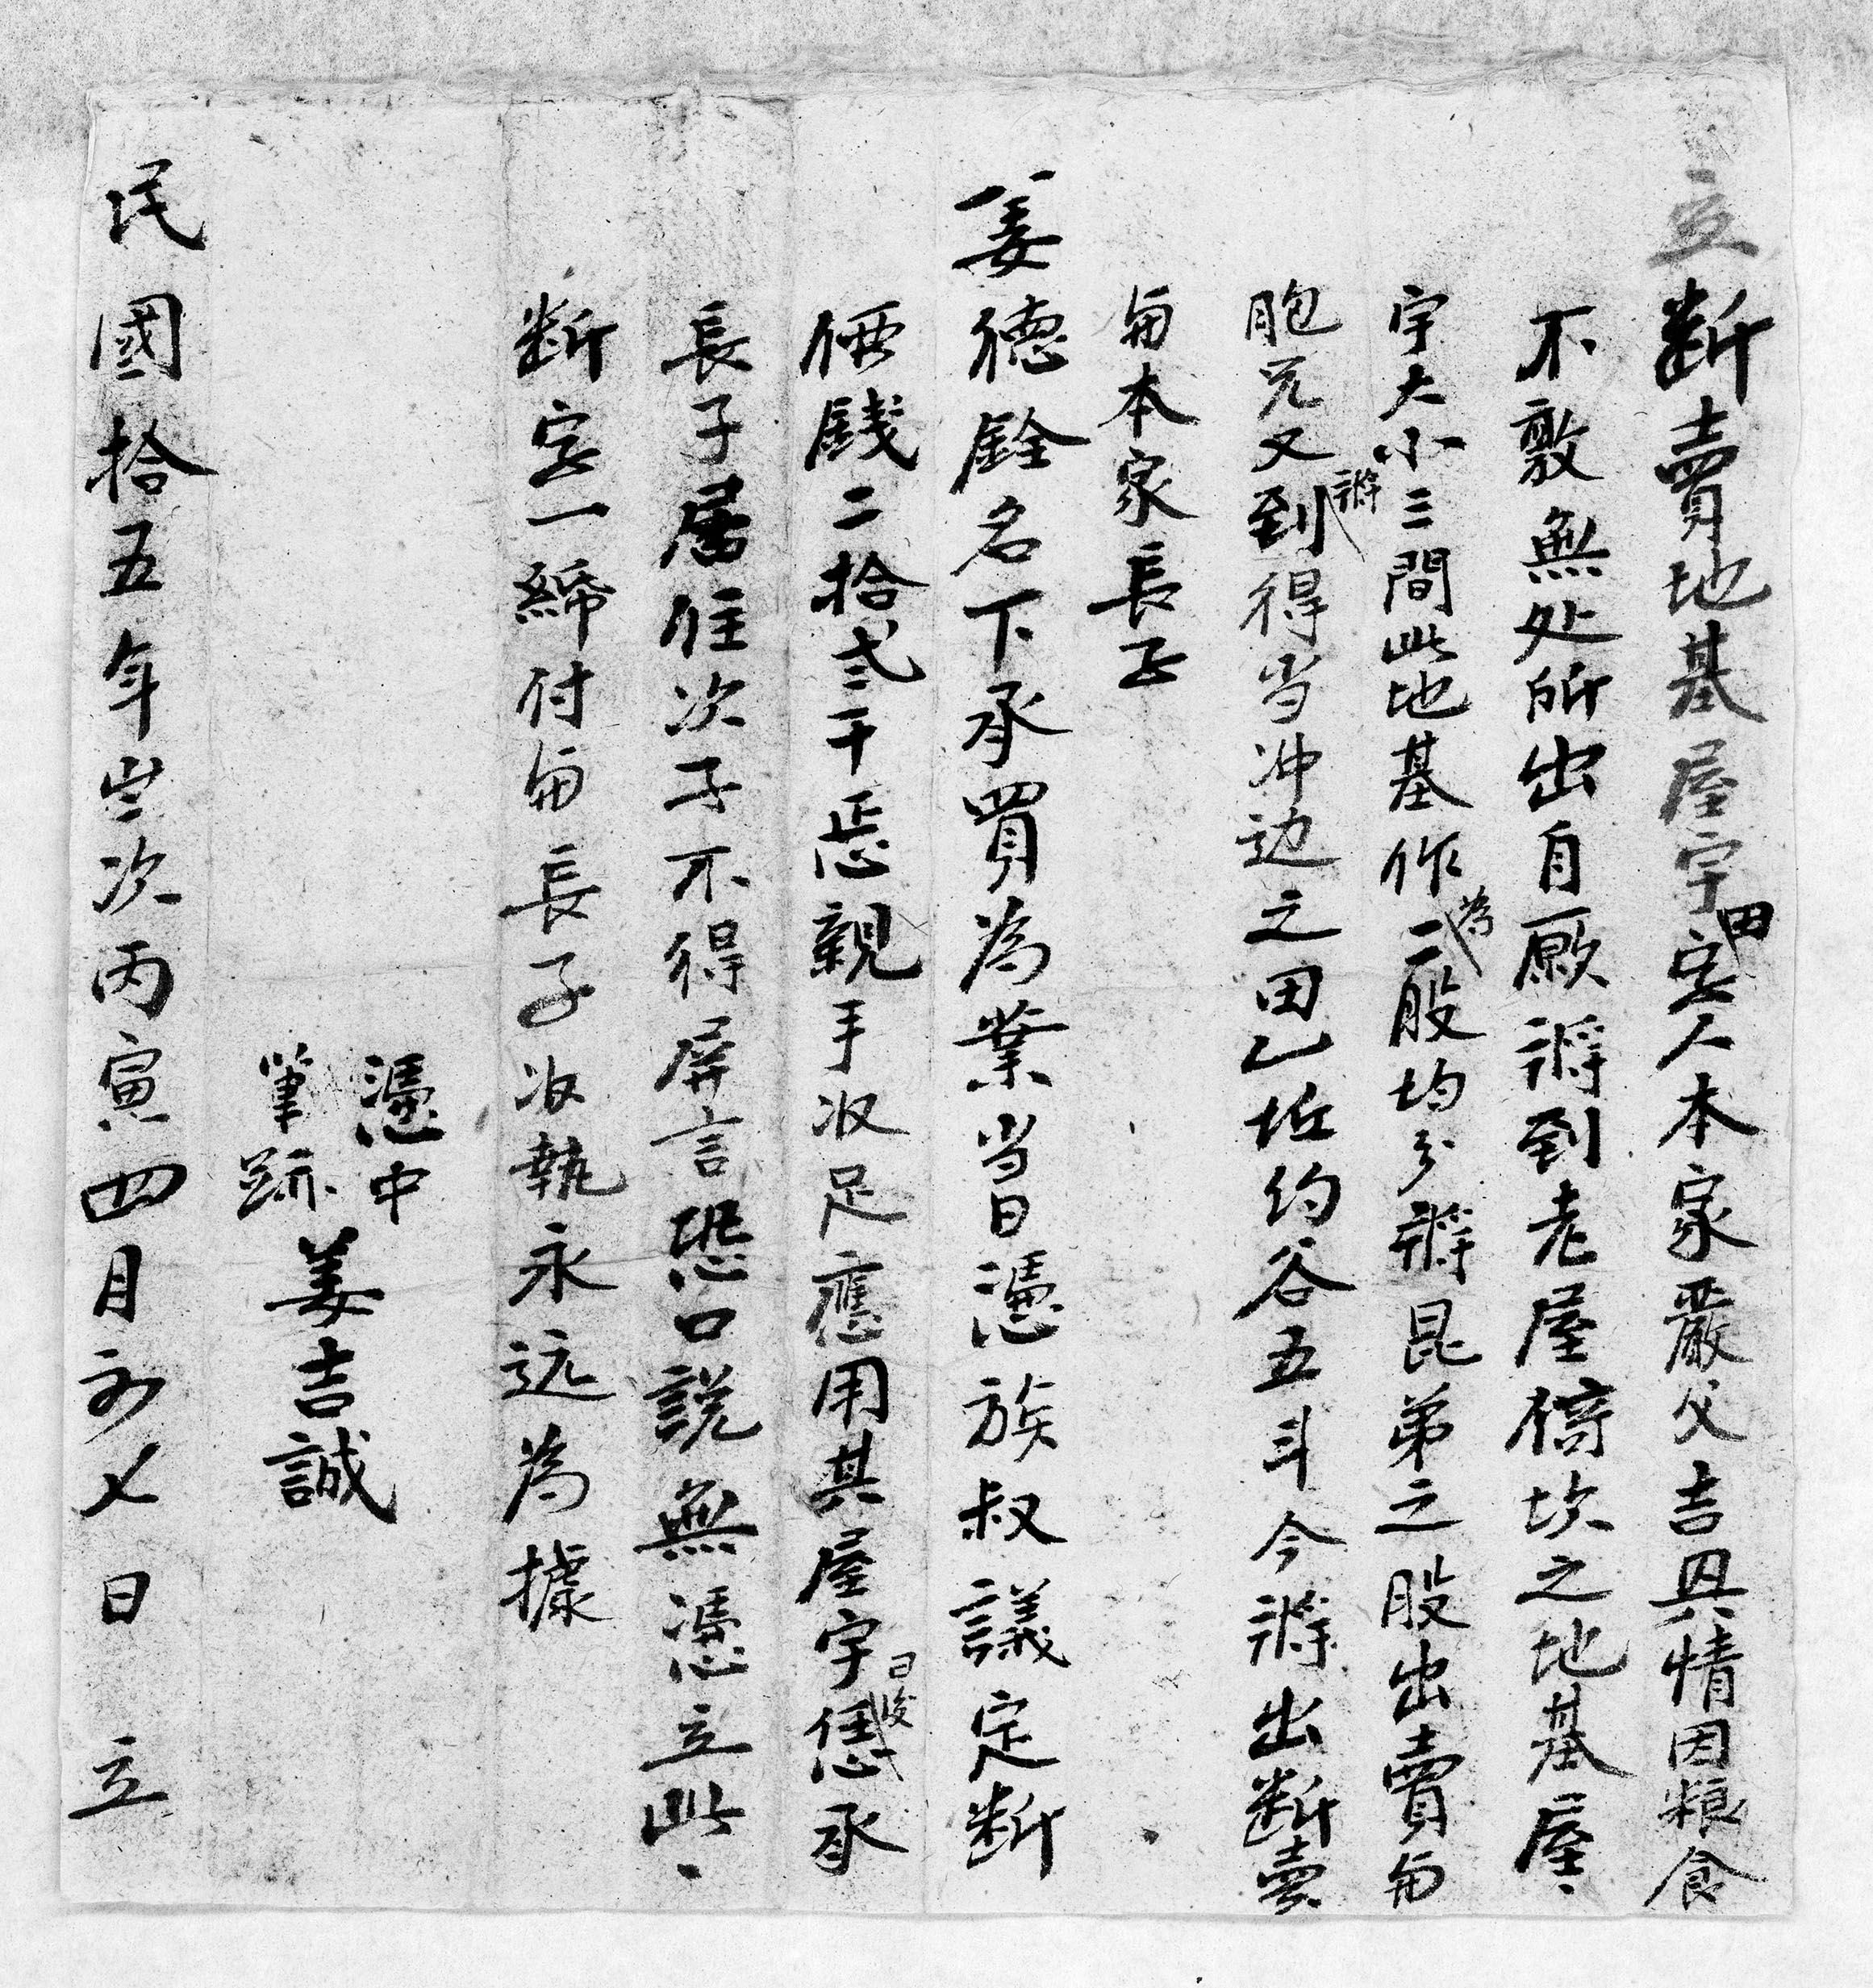 立断賣地基屋宇田字人本家嚴父吉興情因粮食
不敷無处所出自願將到老屋倚坎之地基屋
宇大小三間此地基作為二股均分將昆弟之股出賣与
胞兄又將到得当冲边之田乙坵约谷五斗今將出断賣
与本家長子
姜德銓名下承買為業当日憑族叔議定断
價錢二拾弍千㤫親手收足應用其屋宇日後恁承
長子居住次子不得屏言恐口説無憑立此
断字一紙付与長子收執永远為據
憑中
筆跡
姜吉誠
民國拾五年岁次丙寅四月初七日 立